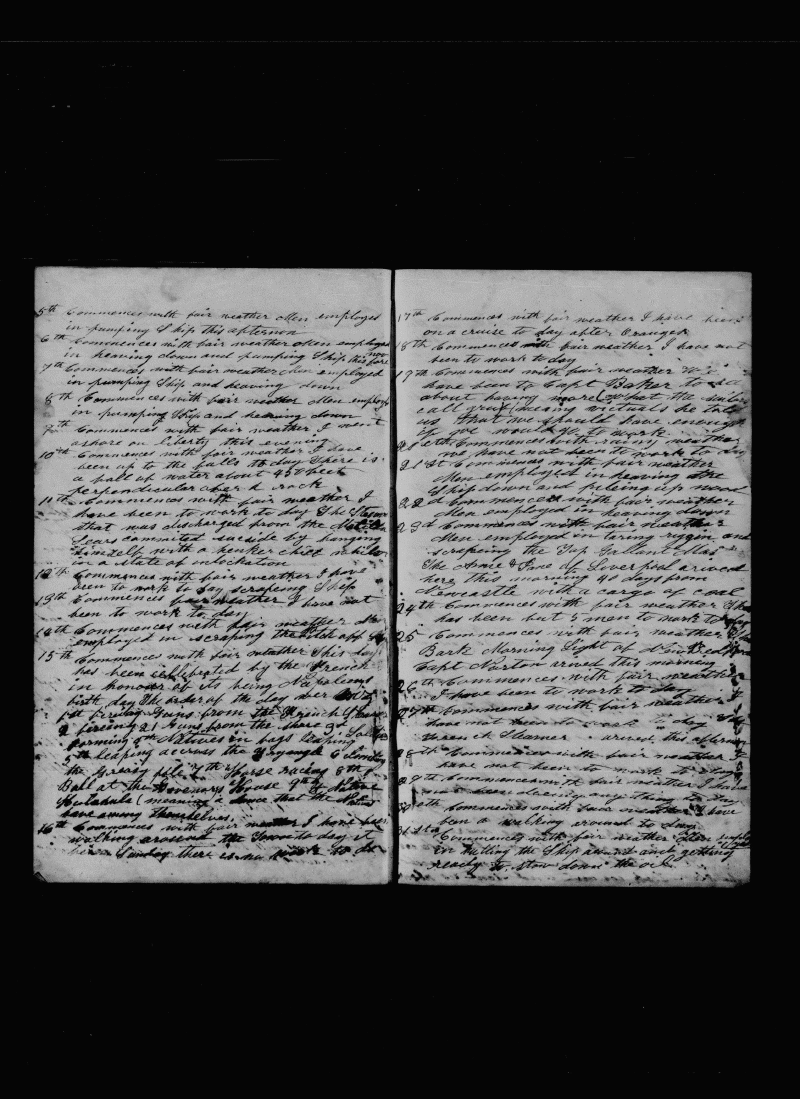 5th Commences with fair weather Men employed
in pumping Ship this afternoon
6th Commences with fair weather Men employed
in heaving down and pumping Ship this fore
noon
7th Commences with fair weather Men employed
in pumping Ship and heaving down
8th Commences with fair weather Men employed
in pumping Ship and heaving down
9th Commences with fair weather I went
ashore on liberty this evening
10th Commences with fair weather I have
been up to the falls to day There is
a fall of water about 450 feet
perpendicular rock
11th Commences with fair weather I
have been to work to day The
that was discharged from the
Sears committed suicide by hanging
himself with a henker chief while
in a state of intockation
12th Commences with fair weather I have
been to work to day scrapeing Ship
13th Commences fair weather I have not
been to work to day
14th Commences with fair weather
employed in scraping the pitch off
15th Commences with fair weather This day
has been cellibrated by the French
in honour of its being Napoleons
birth day The order of the day was
1st fireing Guns from the French
2 fireing 21 Guns from the shore 3d
forming 4th Natives in bags leaping
5th leaping across the 6
the Greasy pole 7th Horse racing 8th
Ball at the Governors House 9th Native
Hulahula (meaning a dance that the Natives
have among themselves
16th Commences with fair weather I have been
walking around the Town to day it
being Sunday there is no work to do
17th Commences with fair weather I have been
on a cruise to day after Oranges
18th Commences with fair weather I have not
been to work to day
19th Commences with fair weather We
have been to Capt Baker to see
about having more (What the sailors
call grub) meaning victuals he told
us that we should have enough
if we would go to work
20th Commences with rainy weather
we have not been to work to day
21st Commences with fair weather
Men employed in heaving the
Ship down and picking up wood
22d Commences with fair weather
Men employed in heaving down
23d Commences with fair weather
Men employed in taring riggin and
scrapeing the Top Gallant Mast
The Annie & Jane of Liverpool arived
here this morning 40 days from
Newcastle with a cargo of coal
24th Commences with fair weather
has been but 5 men to work to day
25 Commences with fair weather
Bark Morning Light of New Bedford
Capt Norton arived this morning
26th Commences with fair weather
I have been to work to day
27th Commences with fair weather
have not been to work to day
French Steamer arived this afternoon
28th Commences with fair weather
have not been to work to day
29th Commences with fair weather I have
not been doeing any thing to day
30th Commences with fair weather I have
been a walking around to day
31st Commences with fair weather Men employed
in hailing the Ship and getting
ready to stow down the oil